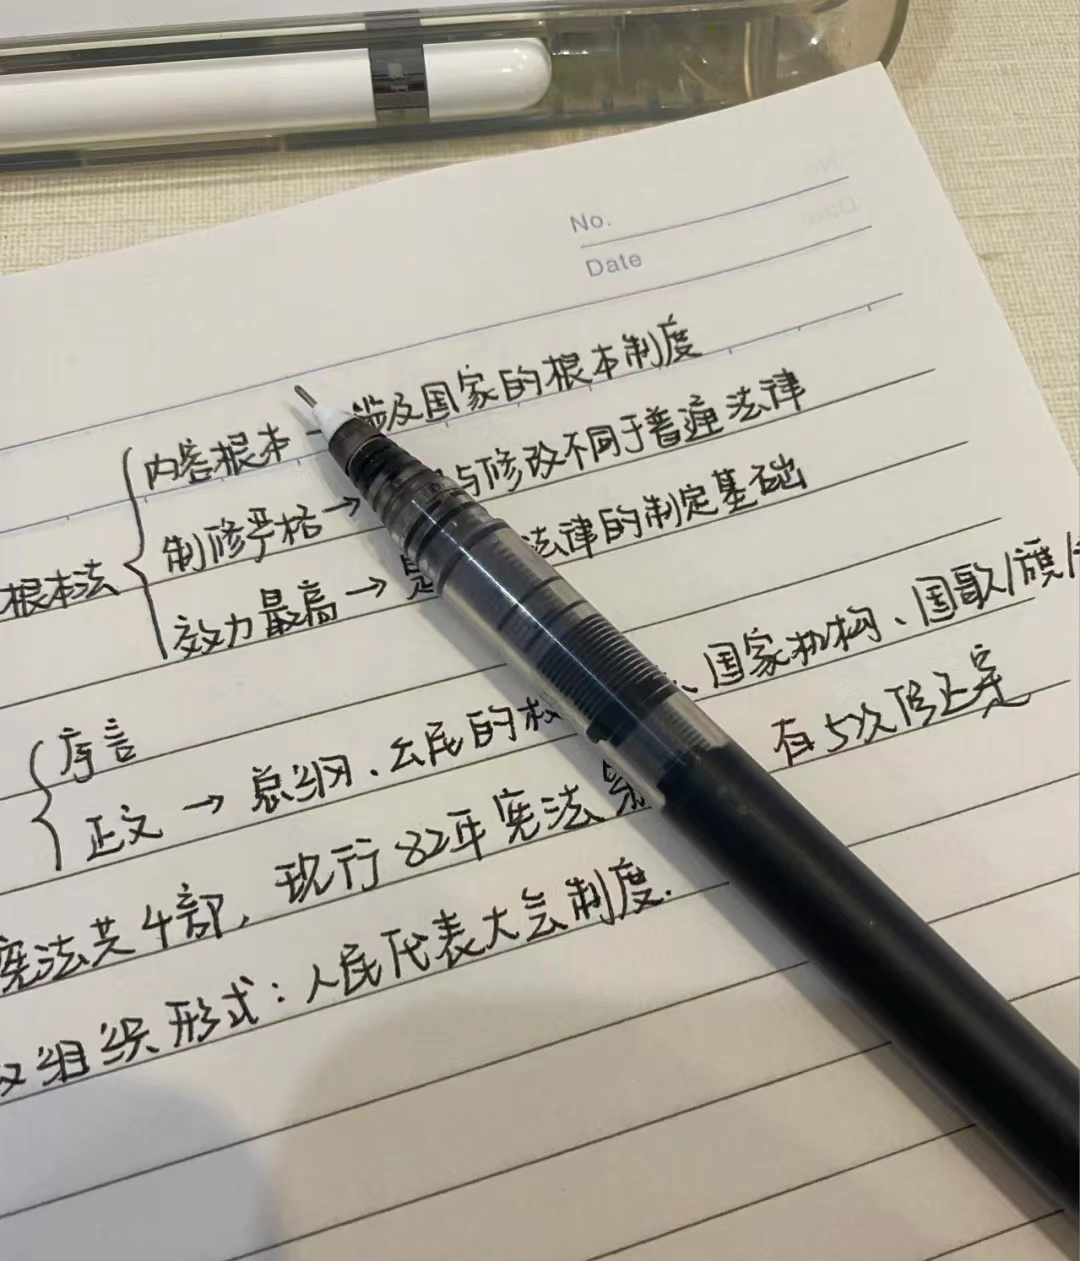 No.
Date
内容根本 涉及国家的根本制度
制修严格→ 与修改不同于普通法律
根本法
效力最高→是 法律的制定基础
序言
正文→总纲、公民的权 、国家机构、国歌/旗/
宪法共4部,现行82年宪法 有5次修正案
组织形式:人民代表大会制度.